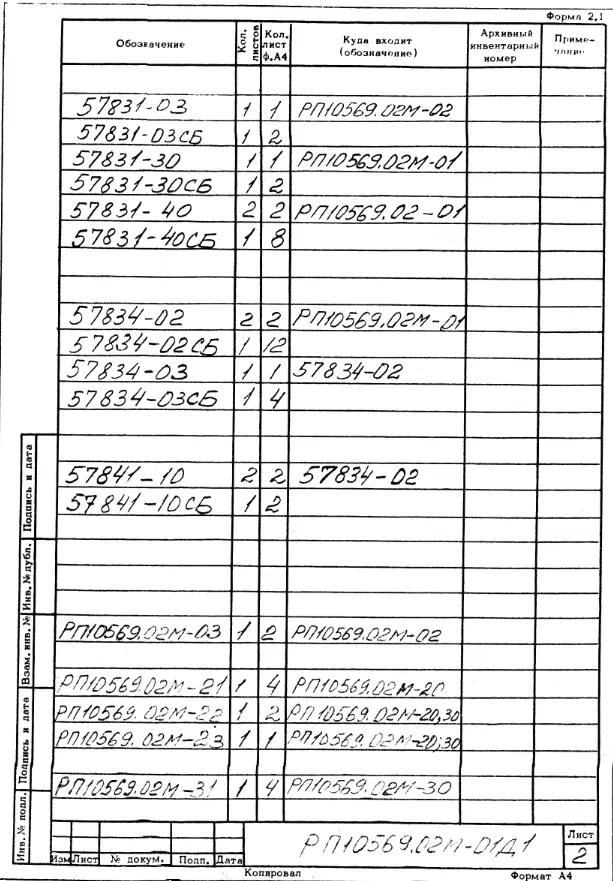 Форма 2.1
Обозначение Кол. листов Кол. лист ф.А4 Куда входит (обозначение) Архивный инвентарный номер Приме-чание
57831-03 1 1 РП10569.02М-02
57831-03СБ 1 2
57831-30 1 1 РП10569.02М-01
57831-30СБ 1 2
57831-40 2 2 РП10569.02-01
57831-40СБ 1 8
57834-02 2 2 РП10569.02М-01
57834-02СБ 1 12
57834-03 1 1 57834-02
57834-03СБ 1 4
57841-10 2 2 57834-02
57841-10СБ 1 2
РП10569.02М-03 1 2 РП10569.02М-02
РП10569.02М-21 1 4 РП10569.02М-20
РП10569.02М-22 1 2 РП10569.02М-20,30
РП10569.02М-23 1 1 РП10569.02М-20;30
РП10569.02М-31 1 4 РП10569.02М-30
Подпись и дата
Инв. № дубл.
Взам. инв. №
Подпись и дата
Инв. № подл.
РП10569.02М-01Д1
Лист
2
Изм Лист № докум. Подп. Дата
Копировал Формат А4